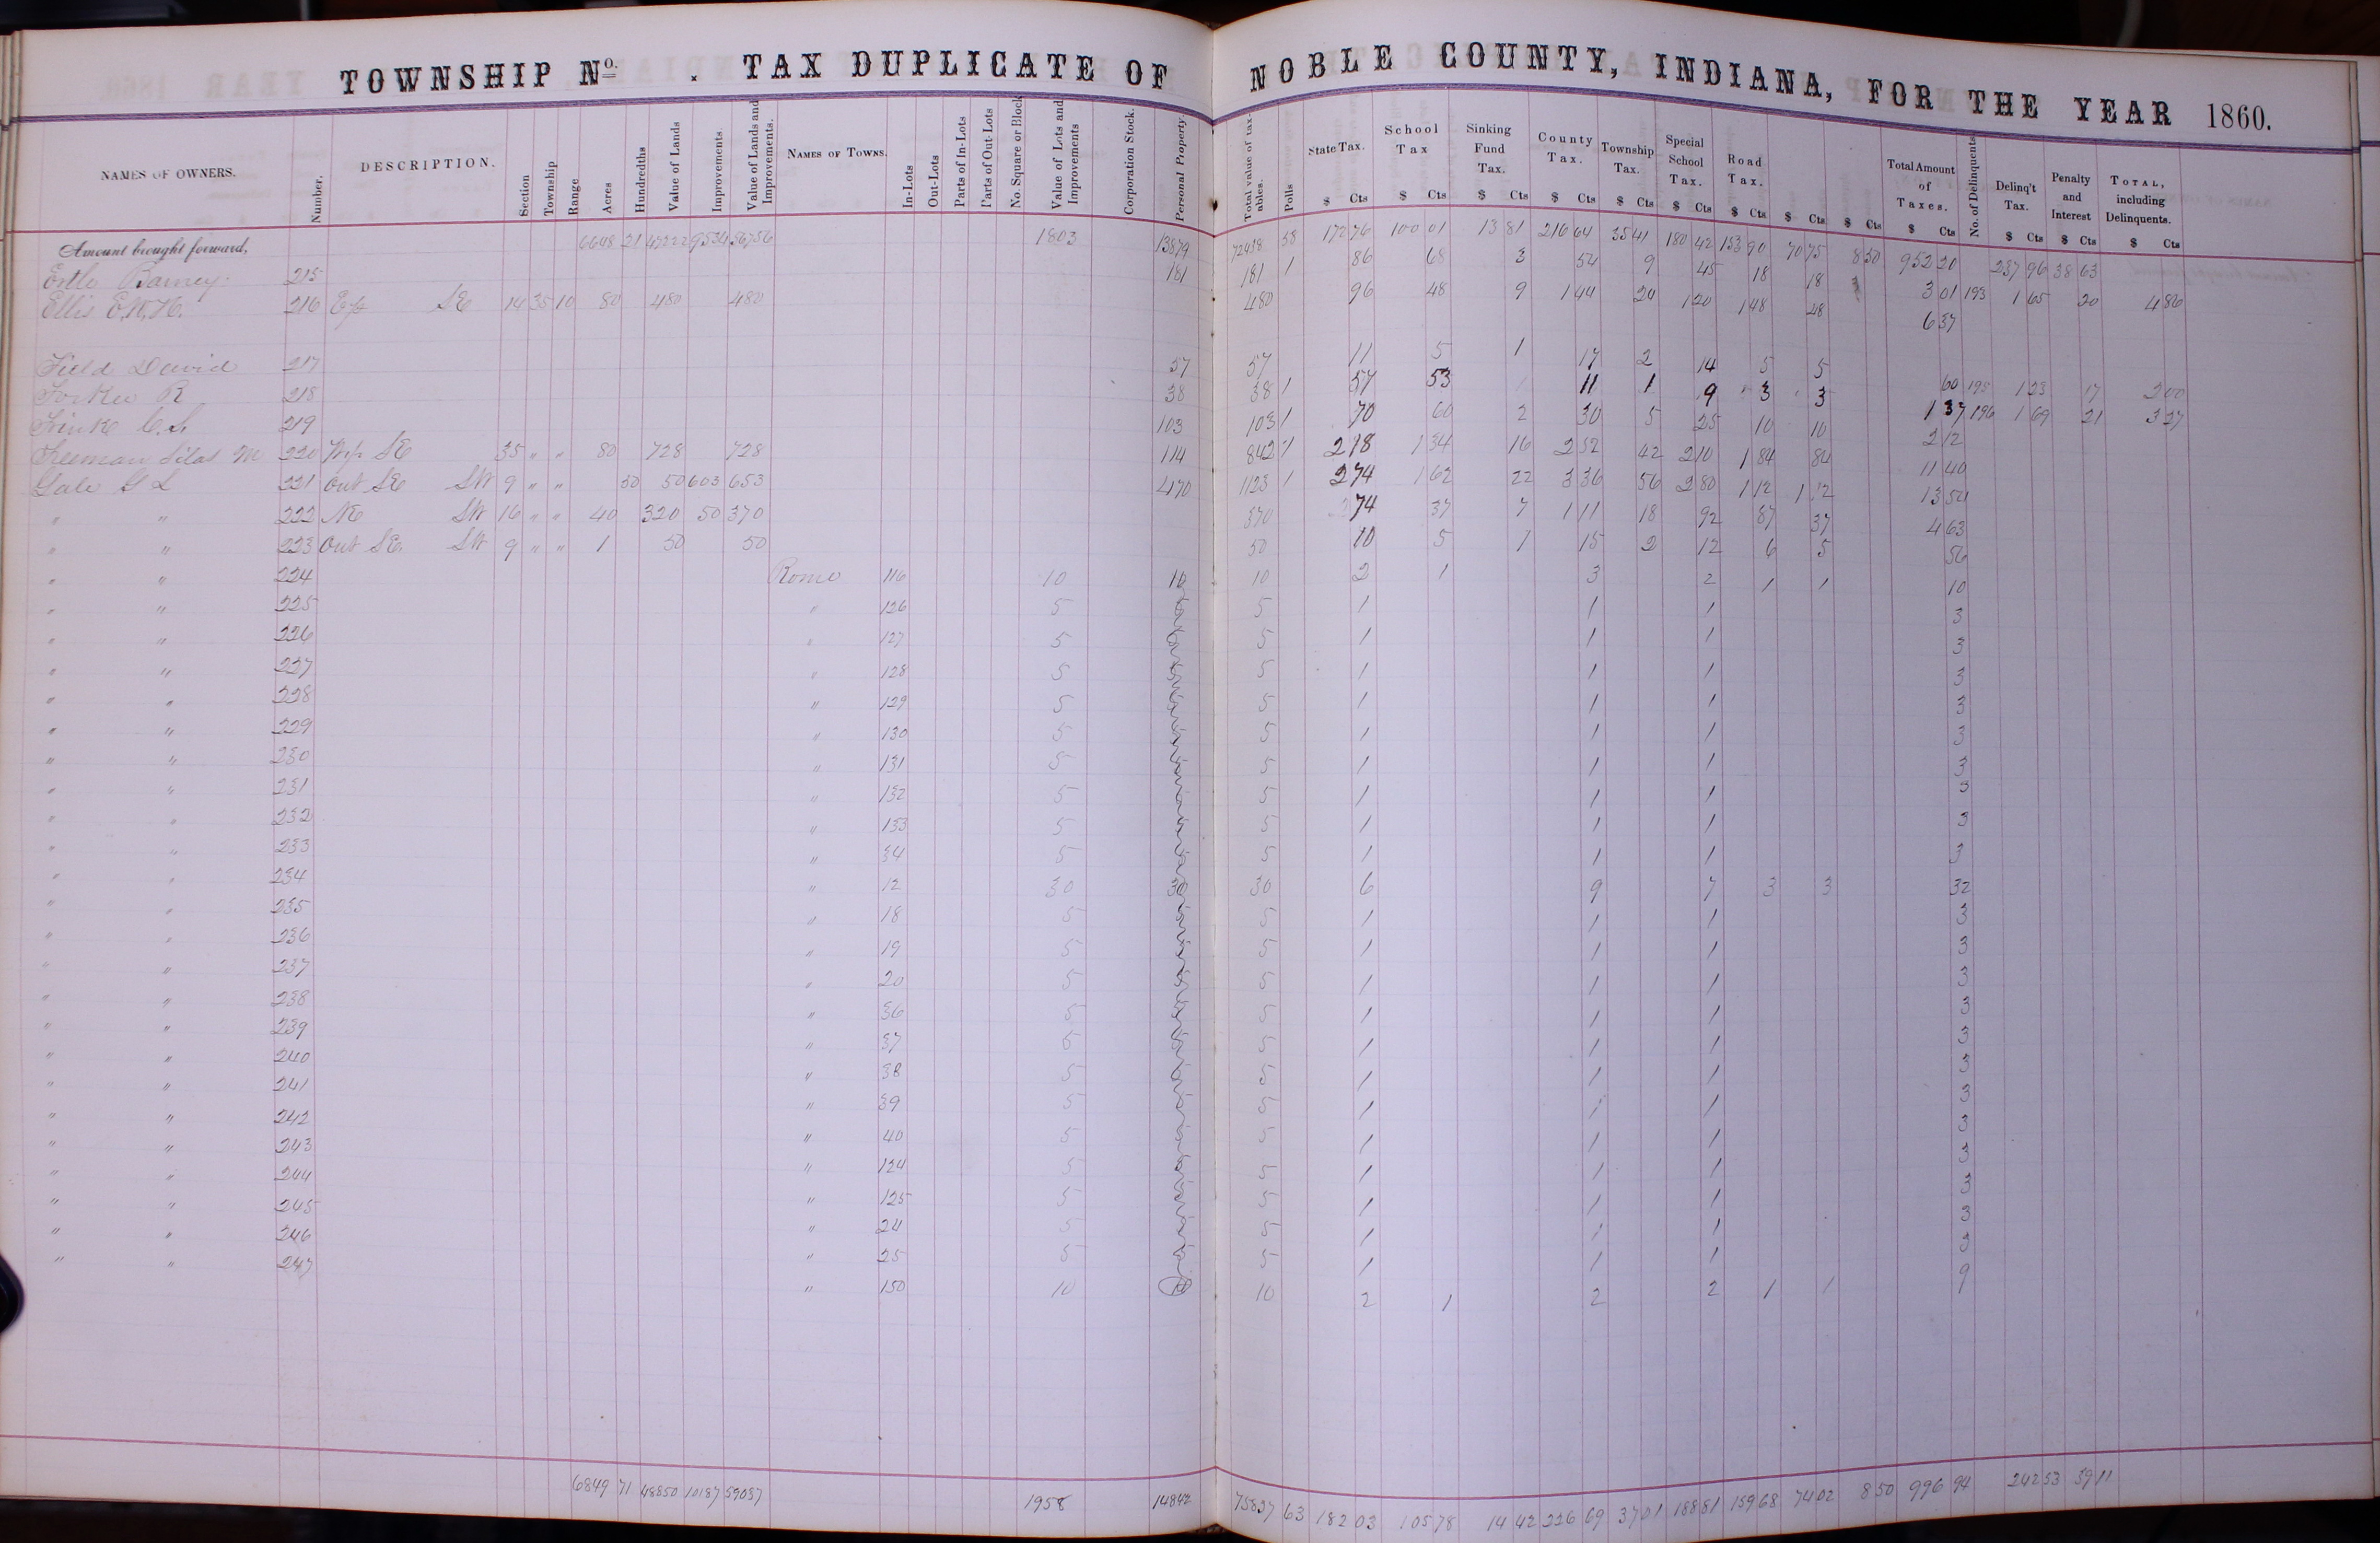 TOWNSHIP No. . TAX DUPLICATE OF NOBLE COUNTY, INDIANA, FOR THE YEAR 1860.
NAMES OF OWNERS. Number. DESCRIPTION. Section Township Range Acres Hundredths Value of Lands Improvements. Value of Lands and Improvements. NAMES OF TOWNS. In-Lots Out-Lots Parts of In-Lots Parts of Out-Lots No. Square or Block Value of Lots and Improvements Corporation Stock. Personal Property. Total value of taxables. Polls State Tax. School Tax Sinking Fund Tax. County Tax. Township Tax. Special School Tax. Road Tax. Total Amount of Taxes. No. of Delinquents Delinq't Tax. Penalty and Interest TOTAL, including Delinquents.
$ Cts $ Cts $ Cts $ Cts $ Cts $ Cts $ Cts $ Cts $ Cts $ Cts $ Cts $ Cts $ Cts
Amount brought forward, 6648 21 47222 9534 56756 1803 13879 72438 58 172 76 100 01 13 81 216 64 35 41 180 42 153 90 70 75 8 50 952 20 237 96 38 63
Barney 215 181 181 1 86 68 3 54 9 45 18 18 3 01 193 1 65 20 4 86
Ellis E.W.H. 216 E½ SE 14 35 10 80 480 480 480 96 48 9 1 44 24 1 20 1 48 48 6 37
Field David 217 57 57 11 5 1 17 2 14 5 5 60 195 1 23 17 2 00
R 218 38 38 1 57 53 11 1 9 3 3 1 37 196 1 69 21 3 27
C.S. 219 103 103 1 70 60 2 30 5 25 10 10 2 12
Freeman Silas M 220 W½ SE 35 " " 80 728 728 114 842 1 2 18 1 34 16 2 52 42 2 10 1 84 84 11 40
Gale G L 221 Out SE SW 9 " " 50 50 603 653 470 1123 1 2 74 1 62 22 3 36 56 2 80 1 12 1 12 13 54
" " 222 NE SW 16 " " 40 320 50 370 370 74 37 7 1 11 18 92 87 37 4 63
" " 223 Out SE SW 9 " " 1 50 50 50 10 5 1 15 2 12 6 5 56
" " 224 Rome 116 10 10 10 2 1 3 2 1 1 10
" " 225 " 126 5 5 1 1 1 3
" " 226 " 127 5 5 1 1 1 3
" " 227 " 128 5 5 1 1 1 3
" " 228 " 129 5 5 1 1 1 3
" " 229 " 130 5 5 1 1 1 3
" " 230 " 131 5 5 1 1 1 3
" " 231 " 132 5 5 1 1 1 3
" " 232 " 133 5 5 1 1 1 3
" " 233 " 34 5 5 1 1 1 3
" " 234 " 12 30 30 30 6 9 7 3 3 32
" " 235 " 18 5 5 1 1 1 3
" " 236 " 19 5 5 1 1 1 3
" " 237 " 20 5 5 1 1 1 3
" " 238 " 36 5 5 1 1 1 3
" " 239 " 37 5 5 1 1 1 3
" " 240 " 38 5 5 1 1 1 3
" " 241 " 39 5 5 1 1 1 3
" " 242 " 40 5 5 1 1 1 3
" " 243 " 124 5 5 1 1 1 3
" " 244 " 125 5 5 1 1 1 3
" " 245 " 24 5 5 1 1 1 3
" " 246 " 25 5 5 1 1 1 3
" " 247 " 150 10 10 2 1 2 2 1 1 9
6849 71 48850 10187 59037 1958 14842 75837 63 182 03 105 78 14 42 226 69 37 01 188 81 159 68 74 02 8 50 996 94 242 53 39 11